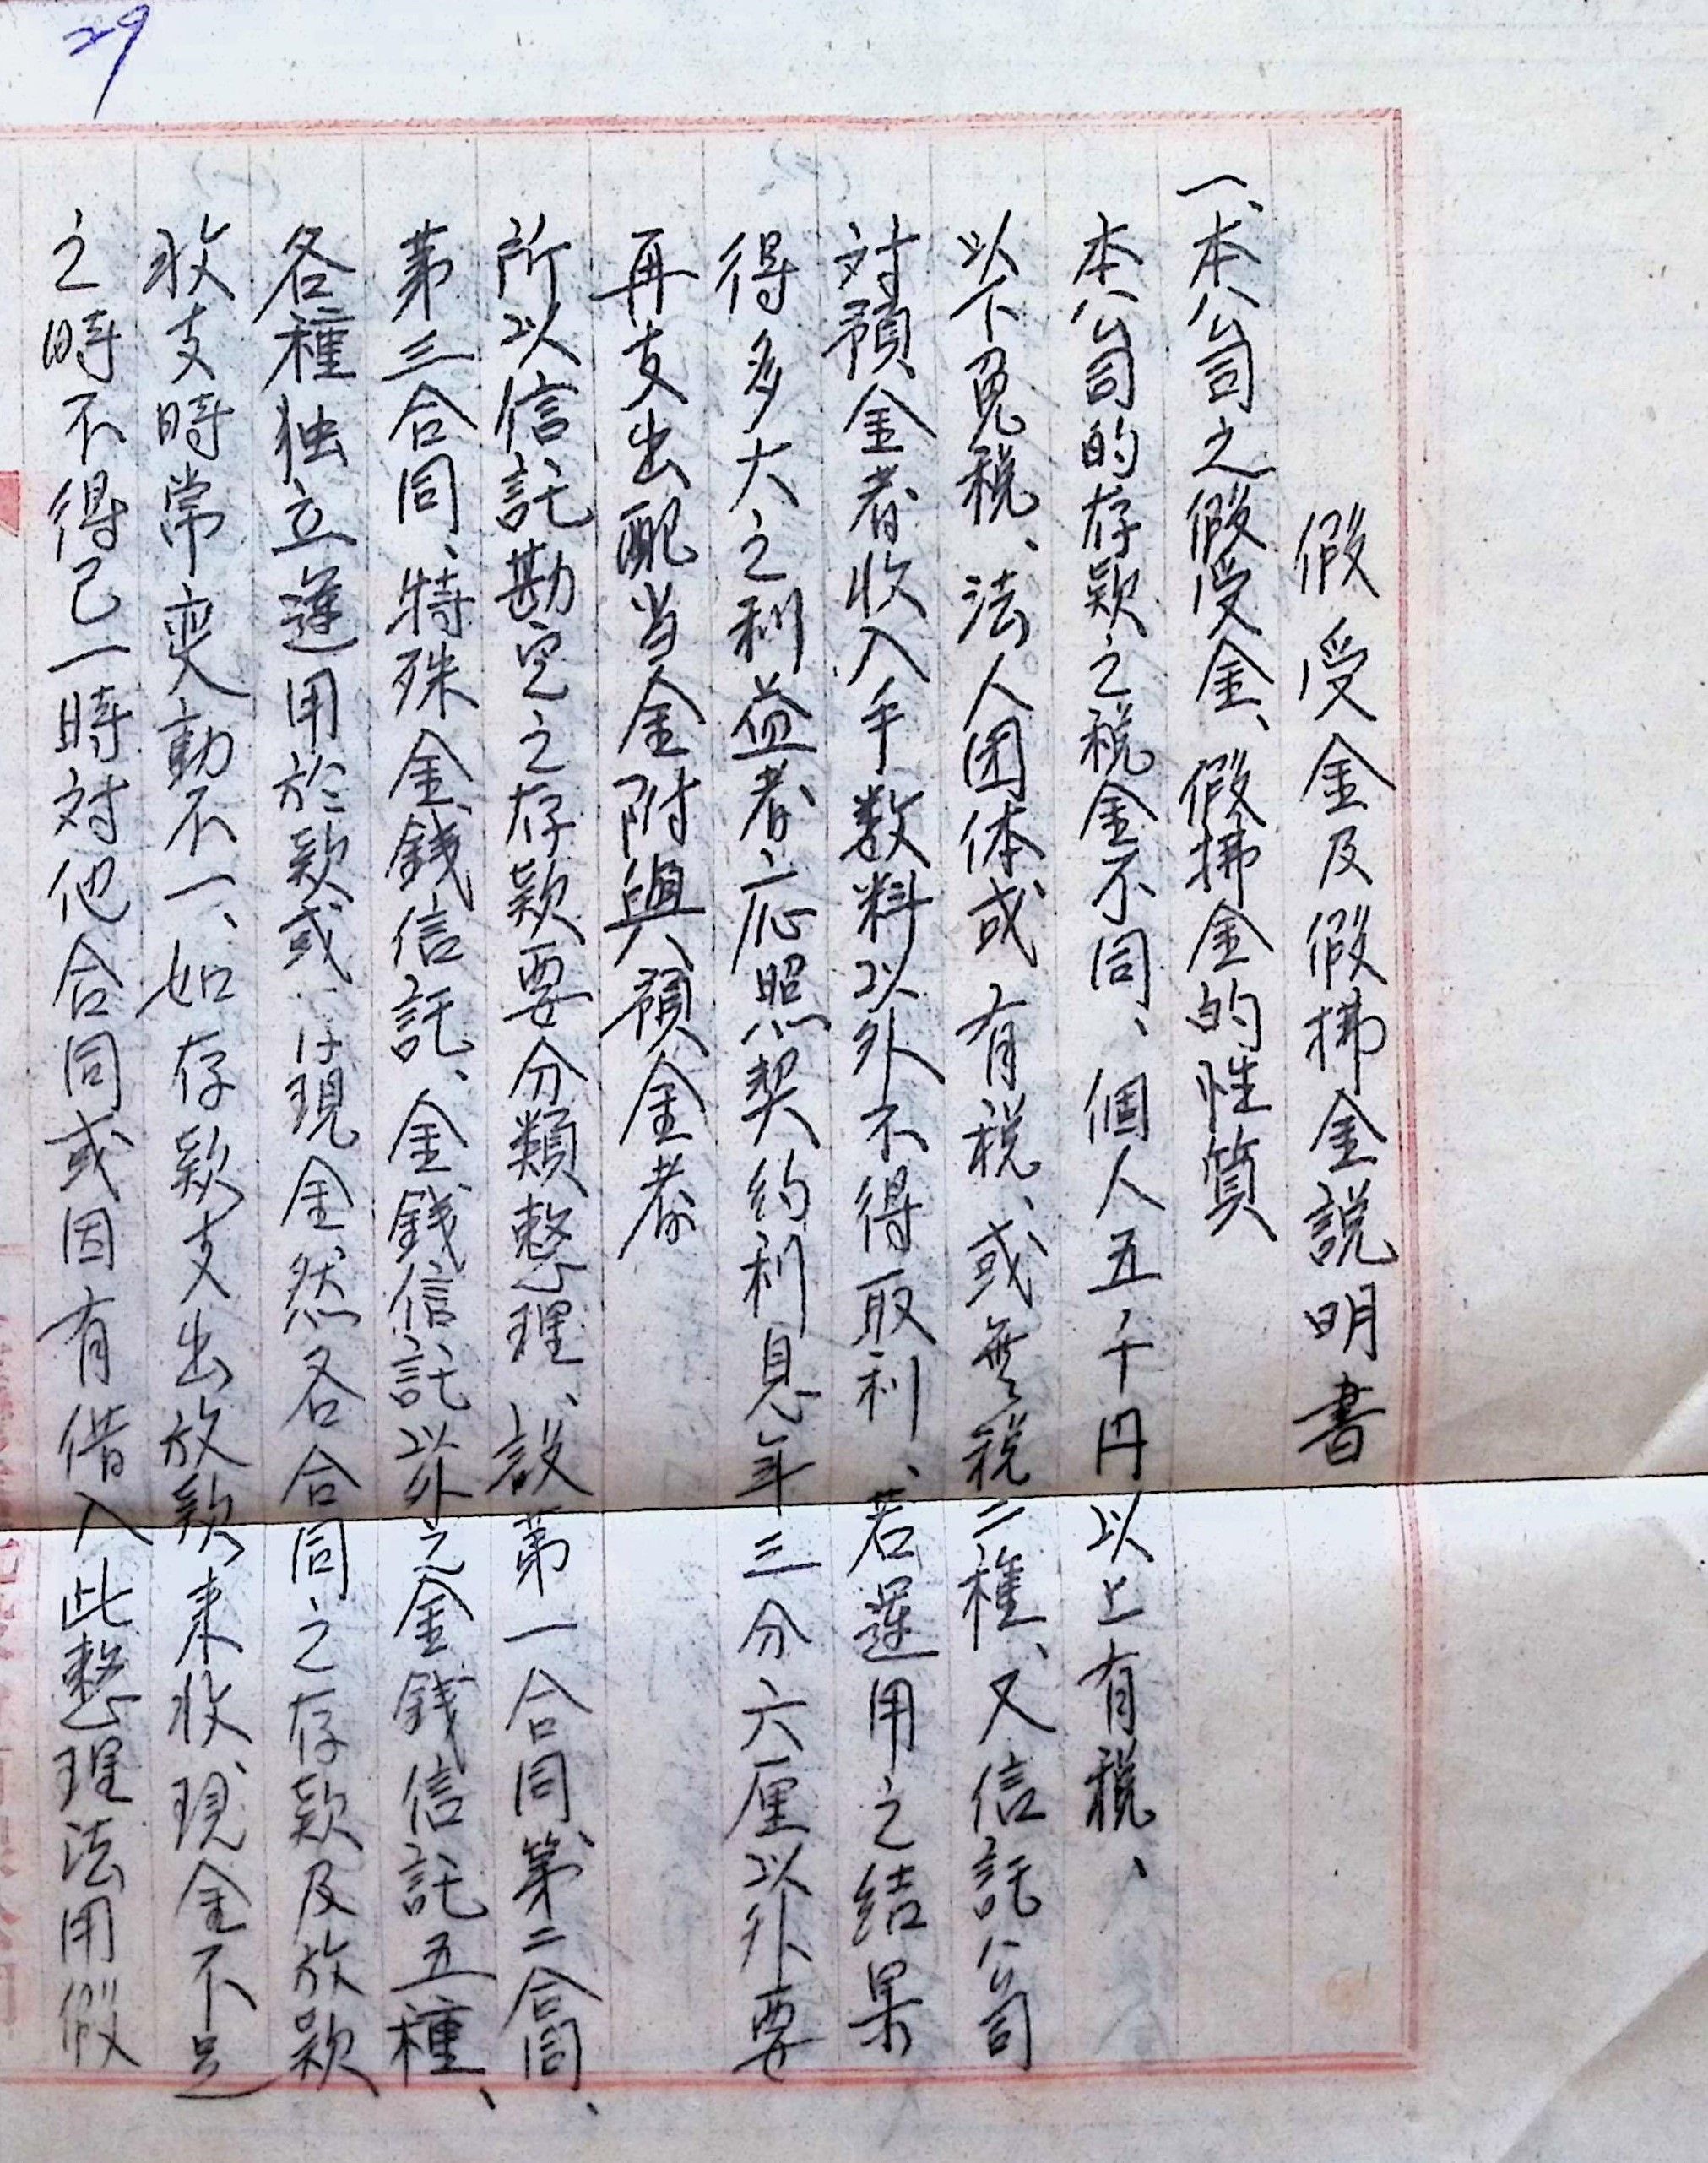 29
假受金及假拂金説明書
一、本公司之假受金、假拂金的性質
本公司的存款之税金不同、個人五千円以上有税、
以下免税、法人团体或有税、或無税二種、又信託公司
対預金者收入手数料以外不得取利、若運用之结果
得多大之利益者応照契约利息年三分六厘以外要
再支出配当金附與預金者
所以信託勘定之存款要分類整理、設第一合同、第二合同、
第三合同、特殊金銭信託、金銭信託以外之金銭信託五種、
各種独立運用於款或 現金然各合同之存款及放款
收支時常変動不一、如存款支出放款未收、現金不足
之時不得已一時対他合同或因有借入此整理法用假